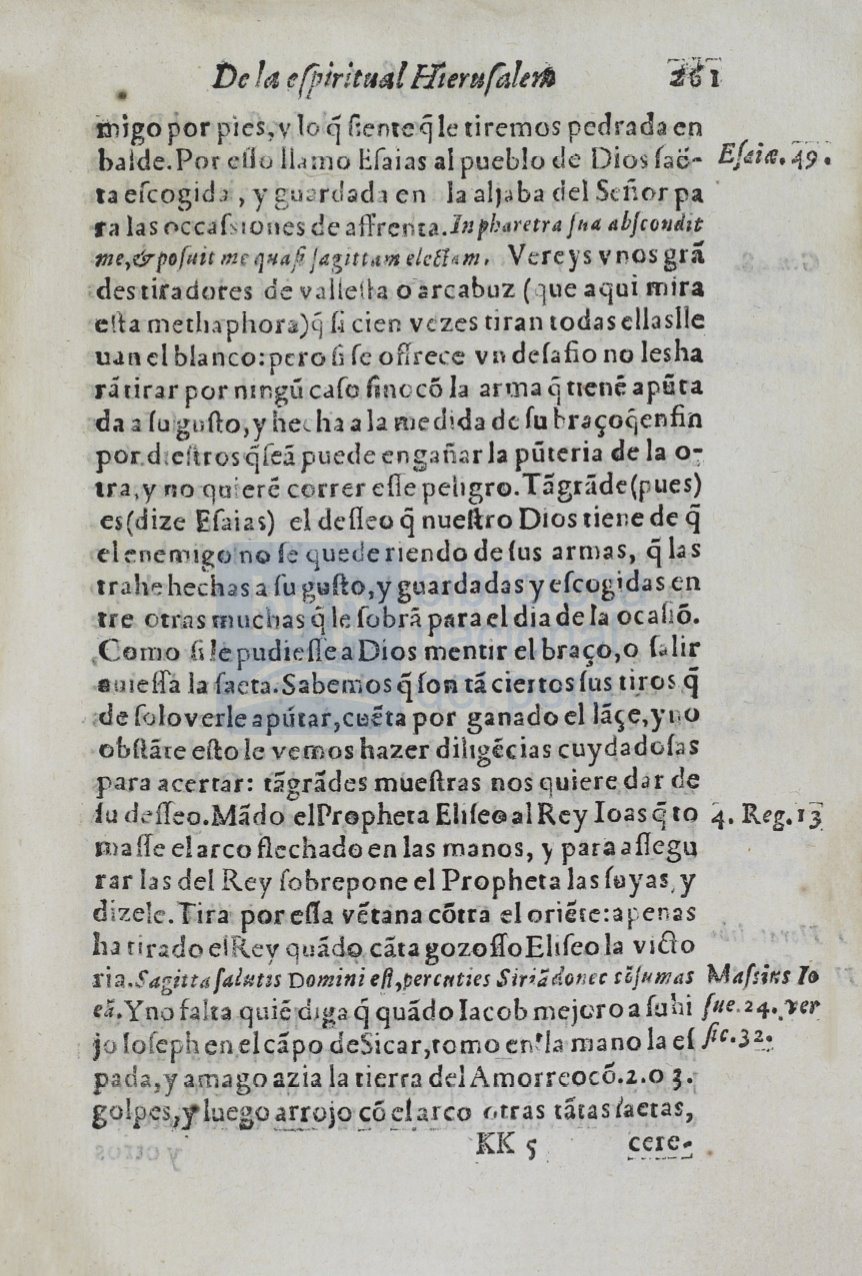 De la eſpiritual Hieruſalem 261
migo por pies, y lo q̃ ſiente q̃ le tiremos pedrada en
balde. Por eſſo llamo Eſaias al pueblo de Dios ſaë- Eſaiæ. 49.
ta eſcogida, y guardada en la aljaba del Señor pa
ra las occaſsiones de affrenta. In pharetra ſua abſcondit
me, & poſuit me quaſi ſagittam electam. Vereys vnos grã
des tiradores de valleſta o arcabuz (que aqui mira
eſta methaphora) q̃ ſi cien vezes tiran todas ellas lle
uan el blanco: pero ſi ſe offrece vn deſafio no les ha
rã tirar por ningũ caſo ſino cõ la arma q̃ tienẽ apũta
da a ſu guſto, y hecha a la medida de ſu braço q̃ enfin
por dieſtros q̃ ſeã puede engañar la pũteria de la o-
tra, y no quierẽ correr eſſe peligro. Tã grãde (pues)
es (dize Eſaias) el deſſeo q̃ nueſtro Dios tiene de q̃
el enemigo no ſe quede riendo de ſus armas, q̃ las
trahe hechas a ſu guſto, y guardadas y eſcogidas en
tre otras muchas q̃ le ſobrã para el dia de la ocaſiõ.
Como ſi le pudieſſe a Dios mentir el braço, o ſalir
auieſſa la ſaeta. Sabemos q̃ ſon tã ciertos ſus tiros q̃
de ſolo verle apũtar, cuẽta por ganado el lãçe, y no
obſtãte eſto le vemos hazer diligẽcias cuydadoſas
para acertar: tã grãdes mueſtras nos quiere dar de
ſu deſſeo. Mãdo el Propheta Eliſeo al Rey Ioas q̃ to 4. Reg. 13
maſſe el arco flechado en las manos, y para aſſegu
rar las del Rey ſobrepone el Propheta las ſuyas, y
dizele. Tira por eſſa vẽtana cõtra el oriẽte: apenas
ha tirado el Rey quãdo cãta gozoſſo Eliſeo la victo
ria. Sagitta ſalutis Domini eſt, percuties Siriã donec cõſumas Maſsius Io
eã. Y no falta quiẽ diga q̃ quãdo Iacob mejoro a ſu hi ſue. 24. ver
jo Ioſeph en el cãpo de Sicar, tomo en la mano la eſ ſic. 32.
pada, y amago azia la tierra del Amorreo cõ. 2. o 3.
golpes, y luego arrojo cõ el arco otras tãtas ſaetas,
KK 5 cere-